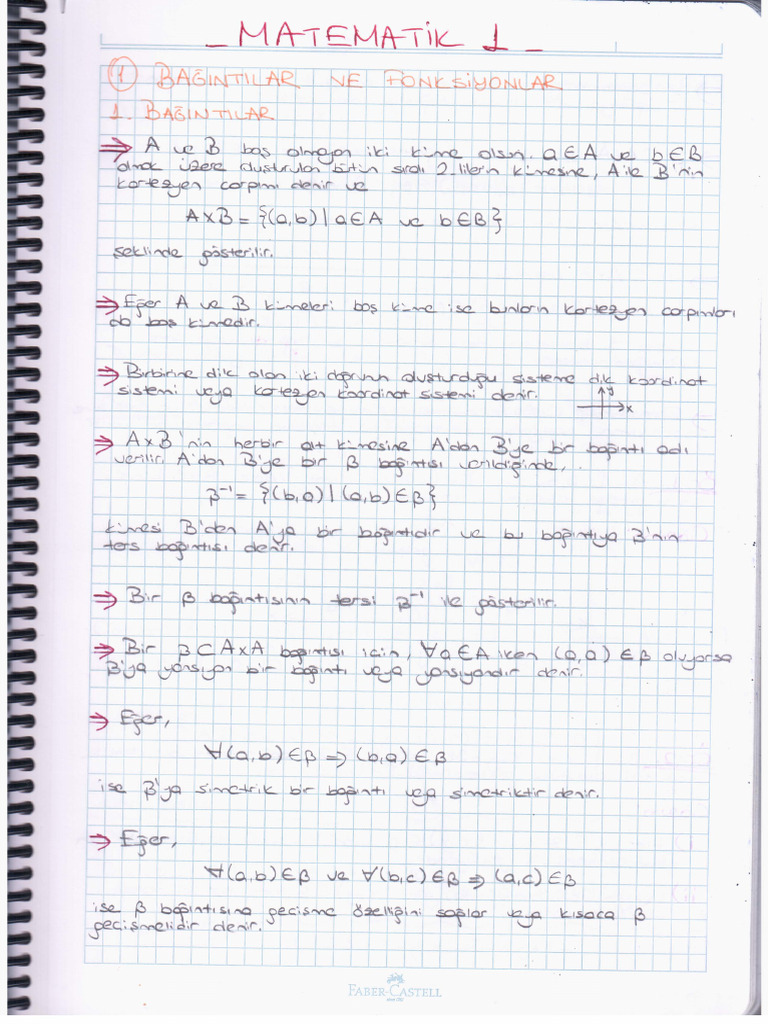 _ MATEMATİK 1 _
① BAĞINTILAR VE FONKSİYONLAR
1. BAĞINTILAR
⇒ A ve B boş olmayan iki küme olsun. a∈A ve b∈B
olmak üzere oluşturulan bütün sıralı 2'lilerin kümesine, A ile B'nin
kartezyen çarpımı denir ve
AxB = {(a,b) | a∈A ve b∈B}
şeklinde gösterilir.
⇒ Eğer A ve B kümeleri boş küme ise bunların kartezyen çarpımları
da boş kümedir.
⇒ Birbirine dik olan iki doğrunun oluşturduğu sisteme dik koordinat
sistemi veya kartezyen koordinat sistemi denir.
y
x
⇒ AxB'nin herbir alt kümesine A'dan B'ye bir bağıntı adı
verilir. A'dan B'ye bir β bağıntısı verildiğinde,
β⁻¹ = {(b,a) | (a,b)∈β}
kümesi B'den A'ya bir bağıntıdır ve bu bağıntıya β'nın
ters bağıntısı denir.
⇒ Bir β bağıntısının tersi β⁻¹ ile gösterilir.
⇒ Bir β⊂AxA bağıntısı için, ∀a∈A iken (a,a)∈β oluyorsa
β'ya yansıyan bir bağıntı veya yansıyandır denir.
⇒ Eğer,
∀(a,b)∈β ⇒ (b,a)∈β
ise β'ya simetrik bir bağıntı veya simetriktir denir.
⇒ Eğer,
∀(a,b)∈β ve ∀(b,c)∈β ⇒ (a,c)∈β
ise β bağıntısına geçişme özelliğini sağlar veya kısaca β
geçişmelidir denir.
FABER-CASTELL